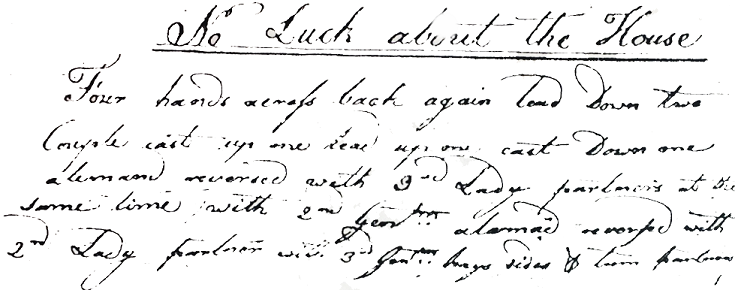 No Luck about the House
Four hands across back again lead Down two
Couple cast up one lead up one cast Down one
alemand reversed with 3rd Lady partners at the
same time with 2nd Gentn alamad reversed with
2nd Lady partner with 3rd Gentn heys sides & turn partners